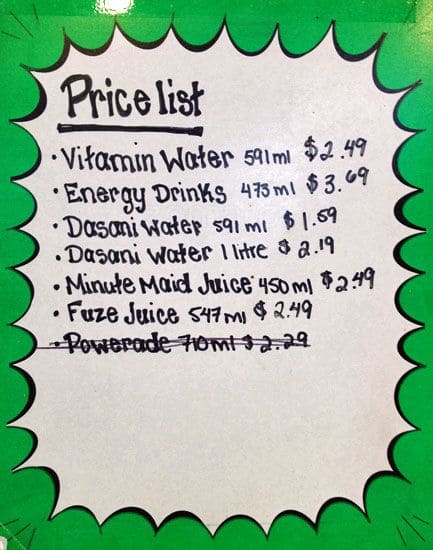 Price list
· Vitamin Water 591ml $2.49
· Energy Drinks 473ml $3.69
· Dasani Water 591ml $1.59
· Dasani Water 1 litre $2.19
· Minute Maid Juice 450ml $2.49
· Fuze Juice 547ml $2.49
· Powerade 710ml $2.29